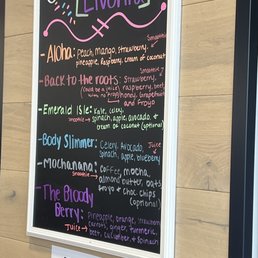 Smoothie
Aloha: Peach, Mango, Strawberry,
pineapple, Raspberry, cream of coconut
Smoothie
- Back to the roots: Strawberry,
(could be a juice) raspberry, beet,
with no honey, Grapefruit
and Froyo
- Emerald Isle: Kale, celery,
Smoothie → spinach, apple, avocado, +
cream of coconut (optional)
- Body Slimmer: Celery, Avocado, Juice
Spinach, apple, blueberry
- Mochanana: coffee, mocha,
Smoothie almond butter, oats,
froyo + choc chips
(optional)
- The Bloody
Berry: Pineapple, orange,
Juice → carrots, ginger, turmeric,
beet, cucumber + spinach